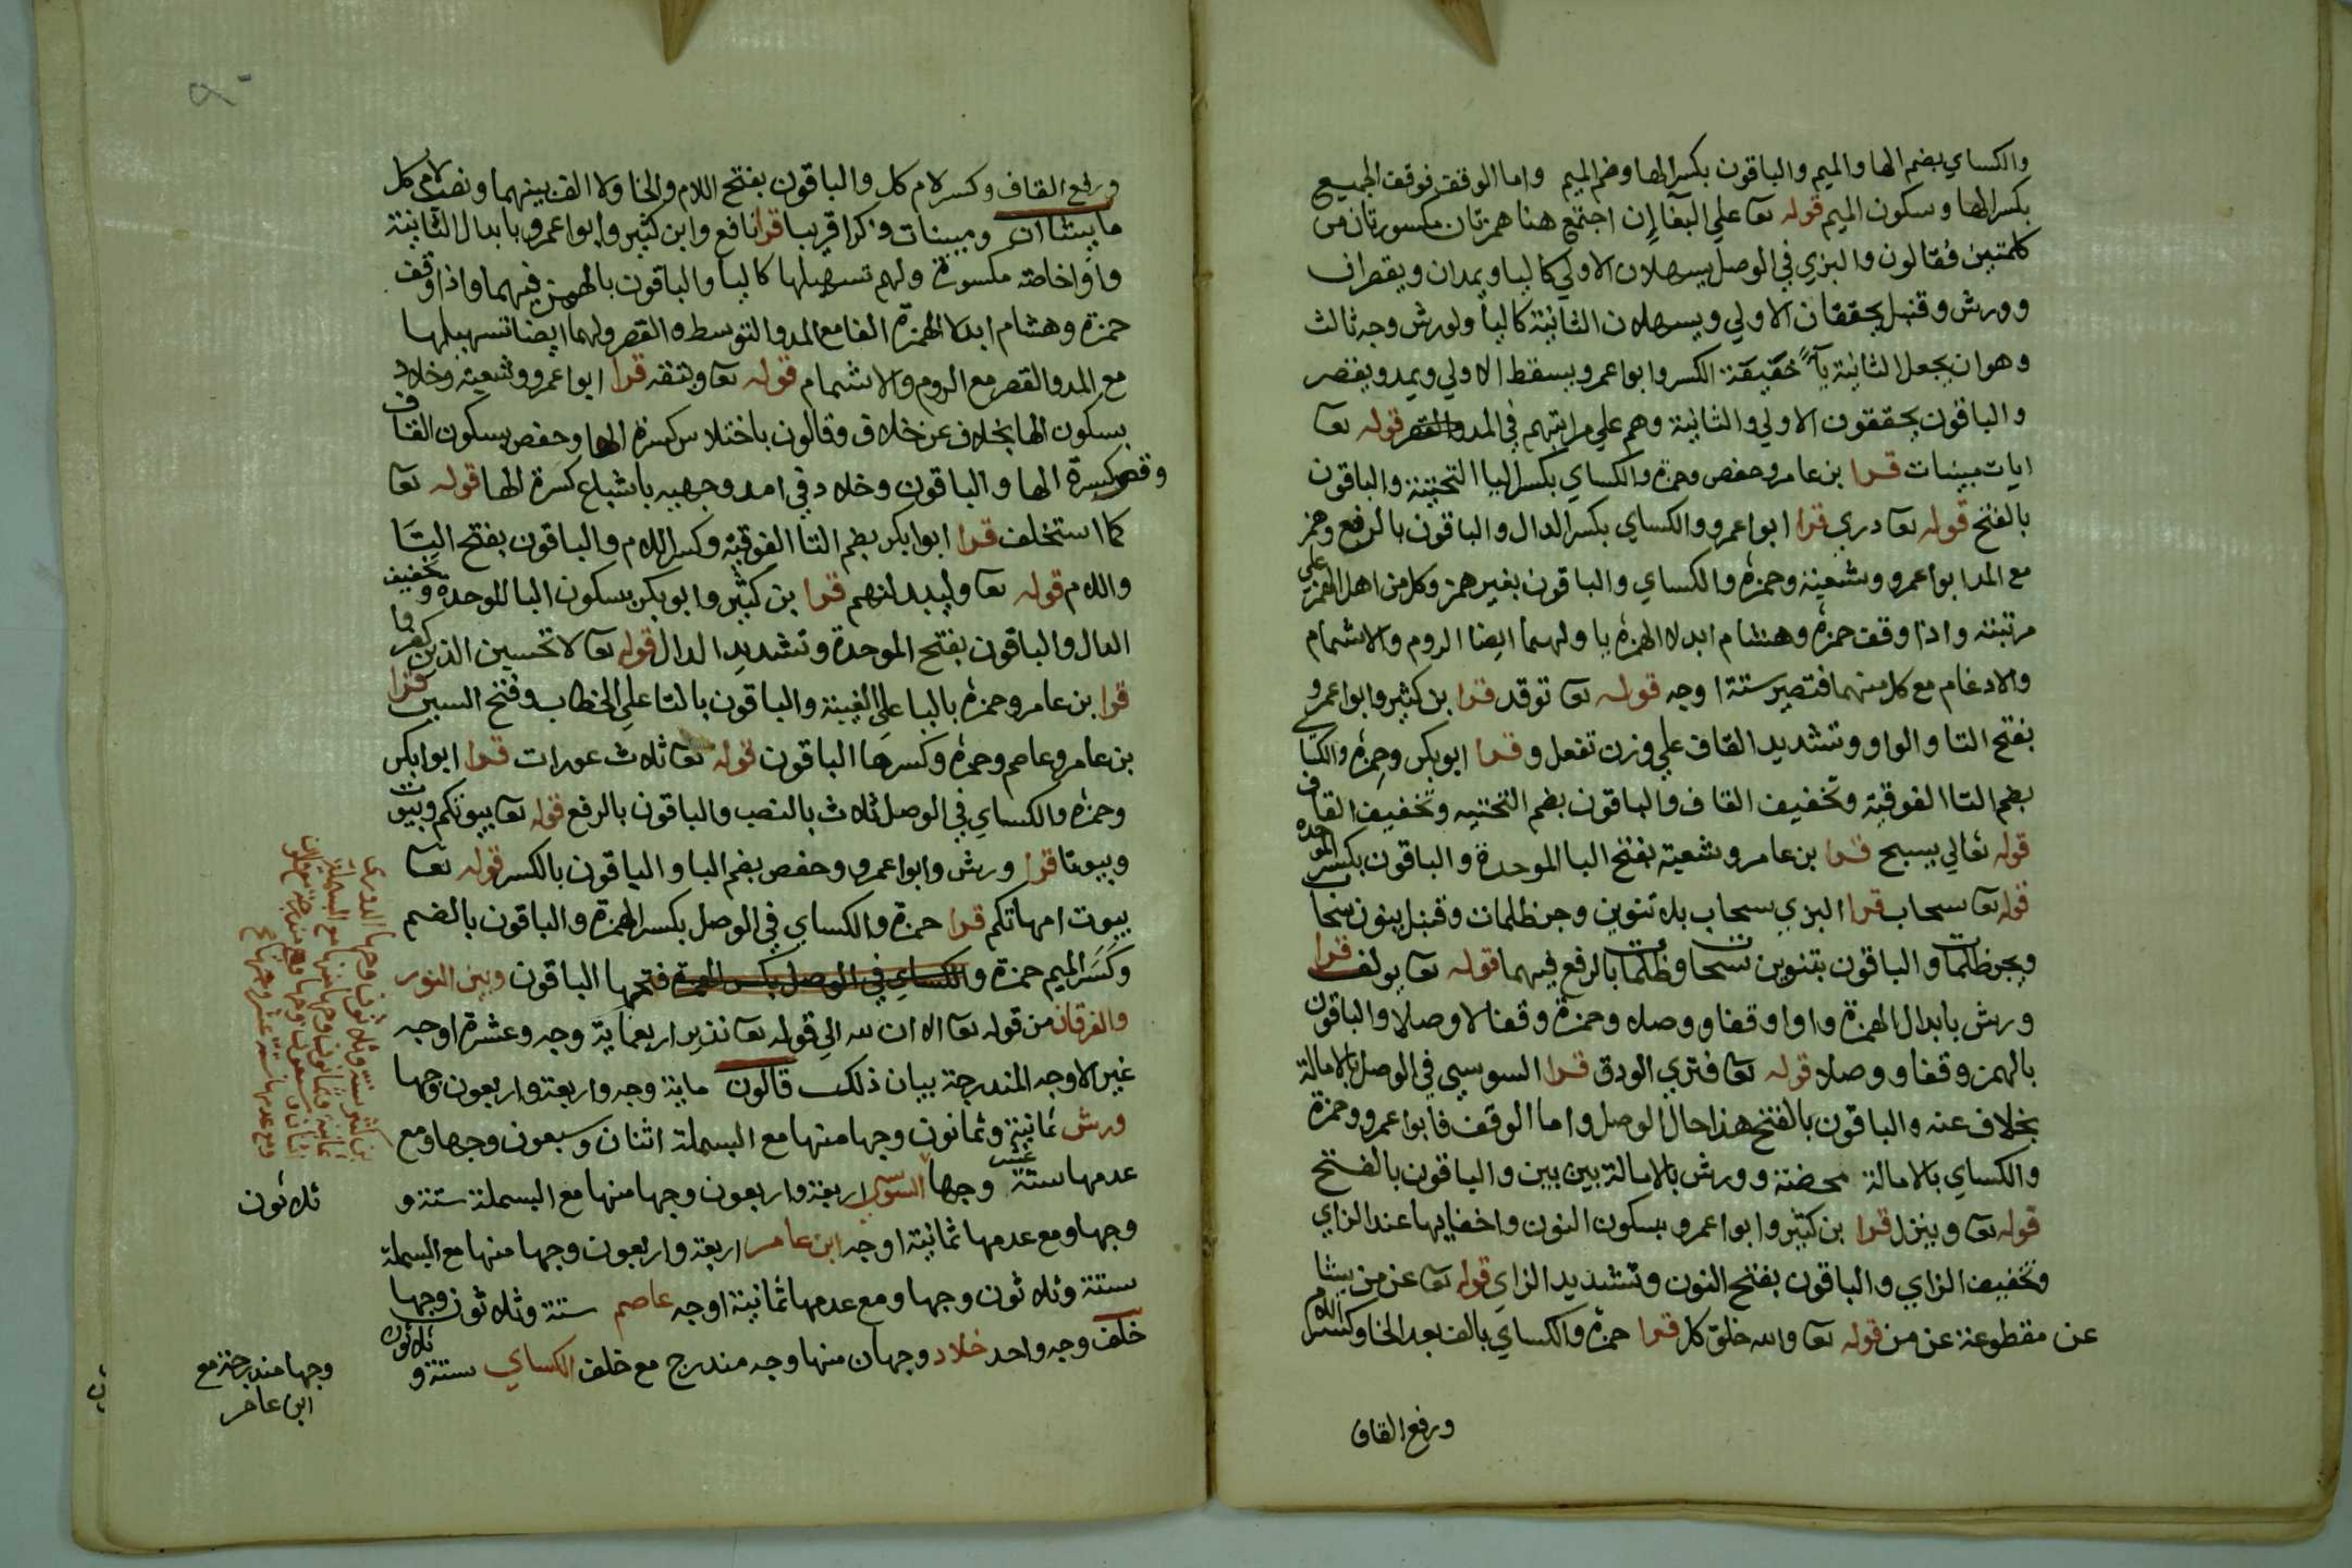 والكساي بضم الها والميم والباقون بكسر الها وضم الميم واما الوقف فوقف الجميع
بكسر الها وسكون الميم قوله تعا علي البغا إن اجتمع هنا همزتان مكسورتان من
كلمتين فقالون والبزي في الوصل يسهلان الاولي كاليا ويمدان ويقصران
وورش وقنبل يحققان الاولي ويسهلان الثانية كاليا ولورش وجه ثالث
وهو ان يجعل الثانية يآ خفيفة الكسر وابو اعمرو يسقط الاولي ويمد ويقصر
والباقون يحققون الاولي والثانية وهم علي مراتبهم في المد والقصر قوله تعا
ايات مبينات قرا بن عامر وحفص وحمزة والكساي بكسر اليا التحتية والباقون
بالفتح قوله تعا دري قرا ابوا عمرو والكساي بكسر الدال والباقون بالرفع وهمز
مع المد ابوا عمرو وشعبة وحمزة والكساي والباقون بغير همز وكل من اهل الهمز علي
مرتبته واذا وقف حمزة وهشام ابدلا الهمزة يا ولهما ايضا الروم والاشمام
والادغام مع كل منهما فتصير ستة اوجه قوله تعا توقد قرا بن كثير وابوا عمرو
بفتح التا والواو وتشديد القاف علي وزن تفعل وقرا ابوبكر وحمزة والكساي
بضم التا الفوقية وتخفيف القاف والباقون بضم التحتيه وتخفيف القاف
قوله تعالي يسبح قرا بن عامر وشعبة بفتح البا الموحدة والباقون بكسر الموحده
قوله تعا سحاب قرا البزي سحاب بلا تنوين وجر ظلمات وقنبل بنون سحاب
وبجر ظلمات والباقون بتنوين سحاب وظلمات بالرفع فيهما قوله تعا يولف قرا
ورش بابدال الهمزة واوا وقفا ووصلا وحمزة وقفا لا وصلا والباقون
بالهمز وقفا ووصلا قوله تعا فتري الودق قرا السوسي في الوصل بالامالة
بخلاف عنه والباقون بالفتح هذا حال الوصل واما الوقف فابوا عمرو وحمزة
والكساي بالامالة محضة وورش بالامالة بين بين والباقون بالفتح
قوله تعا وينزل قرا بن كثير وابوا عمرو بسكون النون واخفايها عند الزاي
وتخفيف الزاي والباقون بفتح النون وتشديد الزاي قوله تعا عن من يشا
عن مقطوعة عن من قوله تعا والله خلق كل قرا حمزة والكساي بالف بعد الخا وكسر اللام
ورفع القاف
ورفع القاف وكسر لام كل والباقون بفتح اللام والخا ولا الف بينهما ونصب لام كل
ما يشا ان ومبينات ذكرا قريبا قرا نافع وابن كثير وابوا عمرو بابدال الثانية
واوا خاصة مكسورة ولهم تسهيلها كاليا والباقون بالهمز فيهما واذا وقف
حمزة وهشام ابدلا الهمزة الفا مع المد والتوسط والقصر ولهما ايضا تسهيلها
مع المد والقصر مع الروم والاشمام قوله تعا ويتقه قرا ابوا عمرو وشعبة وخلاد
بسكون الها بخلاف عن خلاد وقالون باختلاس كسرة الها وحفص بسكون القاف
وقصر كسرة الها والباقون وخلاد في احد وجهيه باشباع كسرة الها قوله تعا
كما استخلف قرا ابوا بكر بضم التا الفوقية وكسر اللام والباقون بفتح التا
واللام قوله تعا وليبدلنهم قرا بن كثير وابوبكر بسكون البا الموحدة وتخفيف
الدال والباقون بفتح الموحدة وتشديد الدال قوله تعا لا تحسين الذين كفروا
قرا بن عامر وحمزة باليا علي الغيبة والباقون بالتا علي الخطاب وفتح السين قرا
بن عامر وعاصم وحمزة وكسرها الباقون قوله تعا ثلاث عورات قرا ابوا بكر
وحمزة والكساي في الوصل ثلاث بالنصب والباقون بالرفع قوله تعا بيوتكم وبيوت
وبيوتا قرا ورش وابوا عمرو وحفص بضم البا والباقون بالكسر قوله تعا
بيوت امهاتكم قرا حمزة والكساي في الوصل بكسر الهمزة والباقون بالضم
وكسر الميم حمزة والكساي في الوصل بكسر الهمزة فتحها الباقون وبين النور
والفرقان من قوله تعا الا ان لله الي قوله تعا نذير اربعماية وجه وعشرة اوجه
غير الاوجه المندرجة بيان ذلك قالون ماية وجه واربعة واربعون وجها
ورش ثمانية وثمانون وجها منها مع البسملة اثنان وسبعون وجها ومع
عدمها ستة عشر وجها السوسي اربعة واربعون وجها منها مع البسملة ستة و
ثلاثون
وجها ومع عدمها ثمانية اوجه ابن عامر اربعة واربعون وجها منها مع البسملة
ستة وثلاثون وجها ومع عدمها ثمانية اوجه عاصم ستة وثلاثون وجها
خلف وجه واحد خلاد وجهان منها وجه مندرج مع خلف الكساي ستة وثلاثون
وجها مندرجة مع
ابن عامر